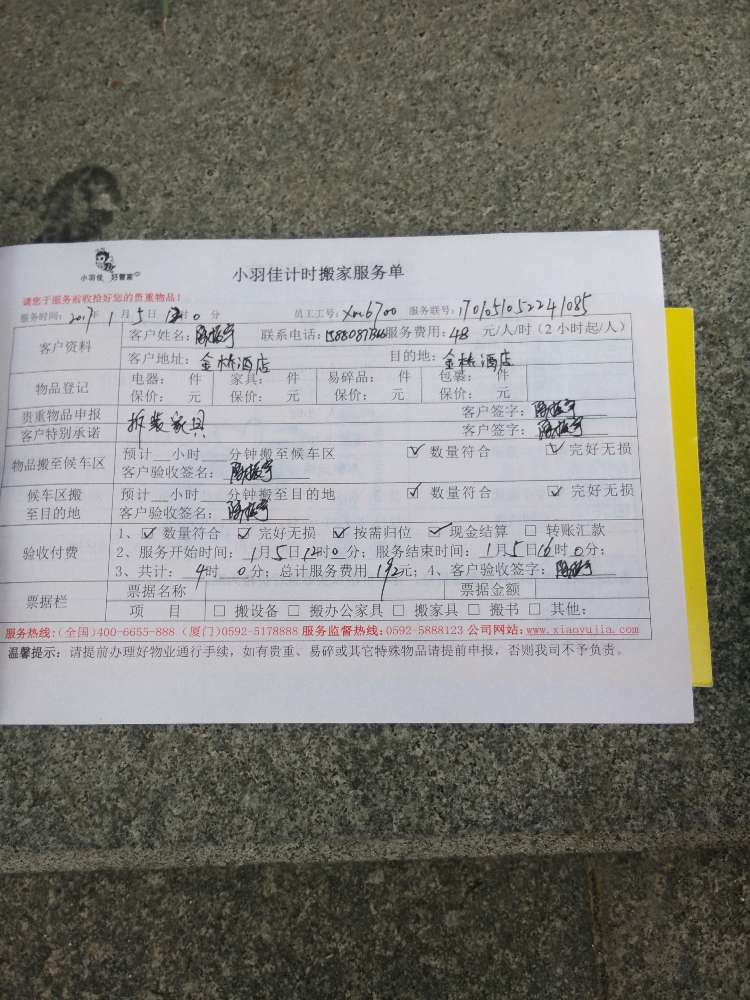 小羽佳 好管家
小羽佳计时搬家服务单
请您于服务前收拾好您的贵重物品!
服务时间: 2017年 1 月 5 日 12时 0 分 员工工号: xm6700 服务联号: 1701051052241085
客户资料 客户姓名: 联系电话: 服务费用: 48 元/人/时(2小时起/人)
客户地址: 金桥酒店 目的地: 金桥酒店
物品登记 电器: 件 家具: 件 易碎品: 件 包裹: 件
保价: 元 保价: 元 保价: 元 保价: 元
贵重物品申报 客户签字:
客户特别承诺 拆装家具 客户签字:
物品搬至候车区 预计__小时____分钟搬至候车区 ☑ 数量符合 ☑ 完好无损
客户验收签名:
候车区搬至目的地 预计__小时____分钟搬至目的地 ☑ 数量符合 ☑ 完好无损
客户验收签名:
验收付费 1、☑ 数量符合 ☑ 完好无损 ☑ 按需归位 ☑ 现金结算 □ 转账汇款
2、服务开始时间: 1月5日12时0分; 服务结束时间: 1月5日16时0分;
3、共计: 4时 0分; 总计服务费用 192元; 4、客户验收签字:
票据栏 票据名称 票据金额
项 目 □ 搬设备 □ 搬办公家具 □ 搬家具 □ 搬书 □ 其他:
服务热线:(全国)400-6655-888 (厦门)0592-5178888 服务监督热线:0592-5888123 公司网站:www.xiaoyujia.com
温馨提示: 请提前办理好物业通行手续, 如有贵重、易碎或其它特殊物品请提前申报, 否则我司不予负责。